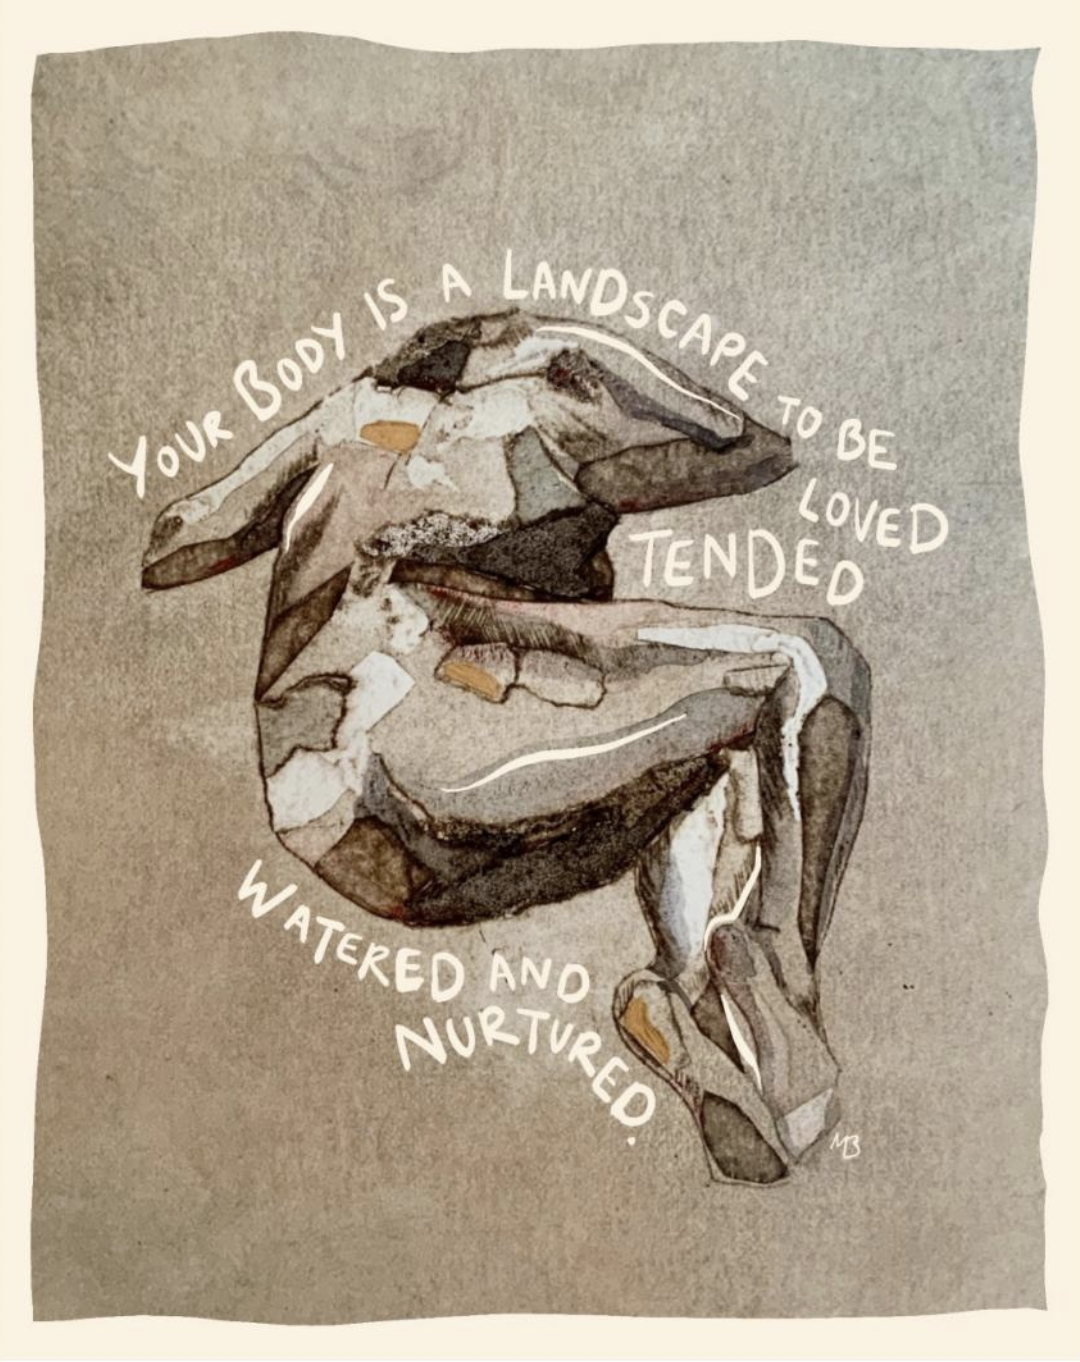 YOUR BODY IS A LANDSCAPE
TO BE
LOVED
TENDED
WATERED AND
NURTURED.
MB